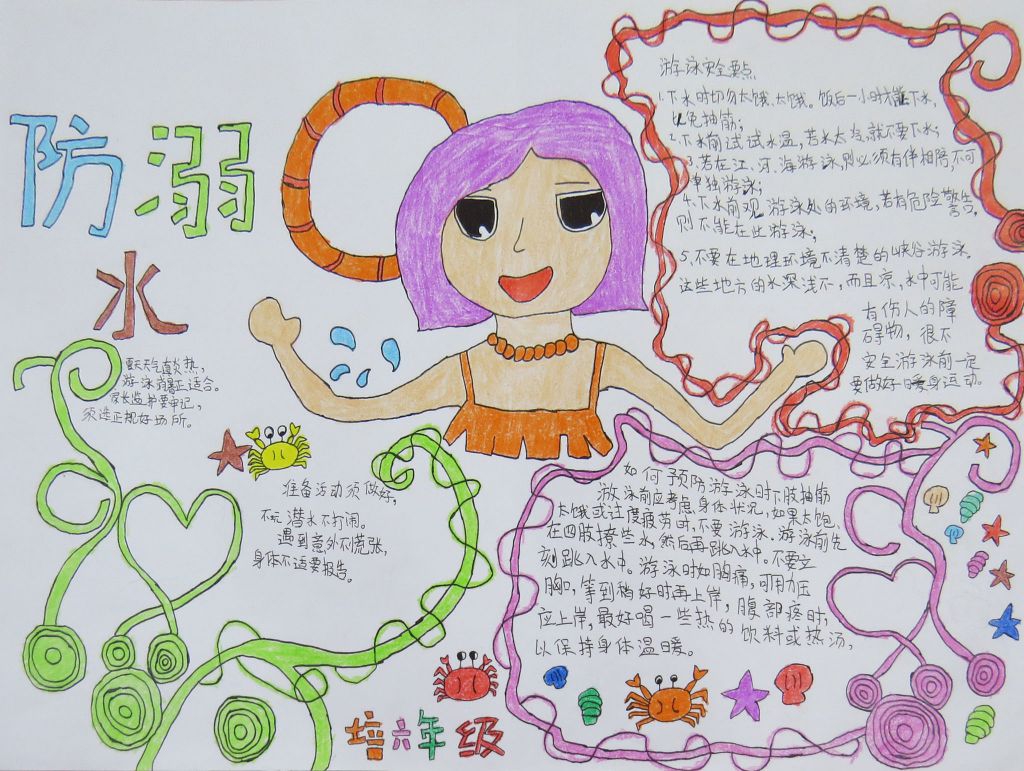 防溺
水
夏天天气真炎热,
游泳消暑正适合。
家长监护要牢记,
须选正规好场所。
准备活动须做好,
不玩潜水不打闹。
遇到意外不慌张,
身体不适要报告。
游泳安全要点
1.下水时切勿太饿、太饿。饭后一小时才能下水,
以免抽筋;
2.下水前试试水温,若水太冷,就不要下水;
3.若在江、河、海游泳,则必须有伴相陪,不可
单独游泳;
4.下水前观游泳处的环境,若有危险警告,
则不能在此游泳;
5.不要在地理环境不清楚的峡谷游泳。
这些地方的水深浅不,而且凉,水中可能
有伤人的障
碍物,很不
安全游泳前一定
要做好日暖身运动。
如何预防游泳时下肢抽筋
游泳前应考虑身体状况,如果太饱、
太饿或过度疲劳时,不要游泳。游泳前先
在四肢撩些水,然后再跳入水中。不要立
刻跳入水中。游泳时如胸痛,可用力压
胸口,等到稍好时再上岸,腹部疼时,
应上岸,最好喝一些热的饮料或热汤,
以保持身体温暖。
培六年级